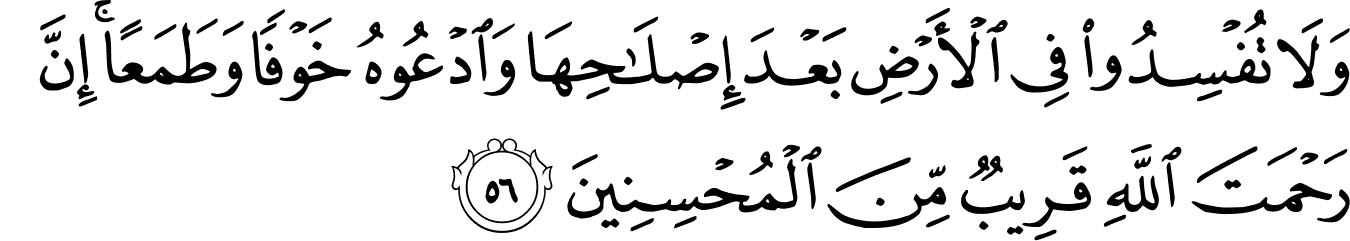 وَلَا تُفْسِدُوا۟ فِى ٱلْأَرْضِ بَعْدَ إِصْلَـٰحِهَا وَٱدْعُوهُ خَوْفًا وَطَمَعًا ۚ إِنَّ
رَحْمَتَ ٱللَّهِ قَرِيبٌ مِّنَ ٱلْمُحْسِنِينَ ٥٦